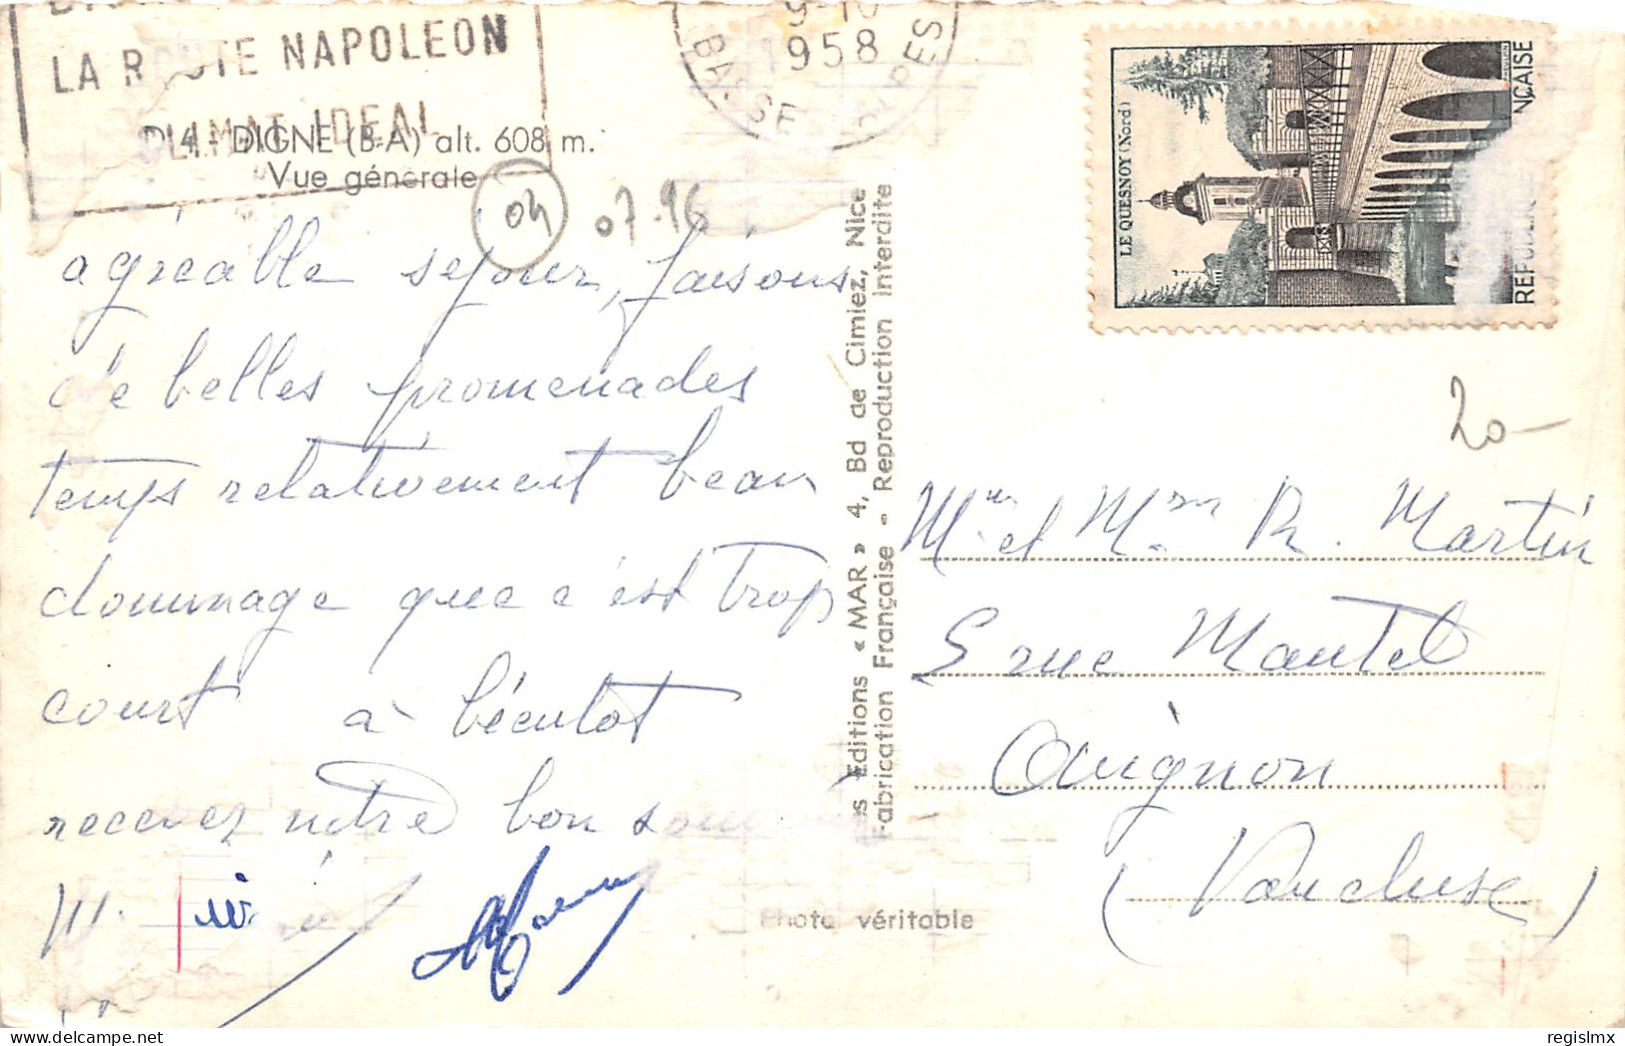 LA ROUTE NAPOLEON
CLIMAT IDEAL
1958
BASSES ALPES
4 - DIGNE (B-A) alt. 608 m.
Vue générale
04
07-96
agréable séjour, faisons
de belles promenades
temps relativement beau
dommage que c'est trop
court à bécutot
recevez notre bon
Editions « MAR » 4, Bd de Cimiez, Nice
Fabrication Française - Reproduction Interdite
Photo véritable
LE QUESNOY (Nord)
REPUBLIQUE FRANÇAISE
20-
Mr et Mme R. Martin
5 rue Mautel
Avignon
(Vaucluse)
regislmx